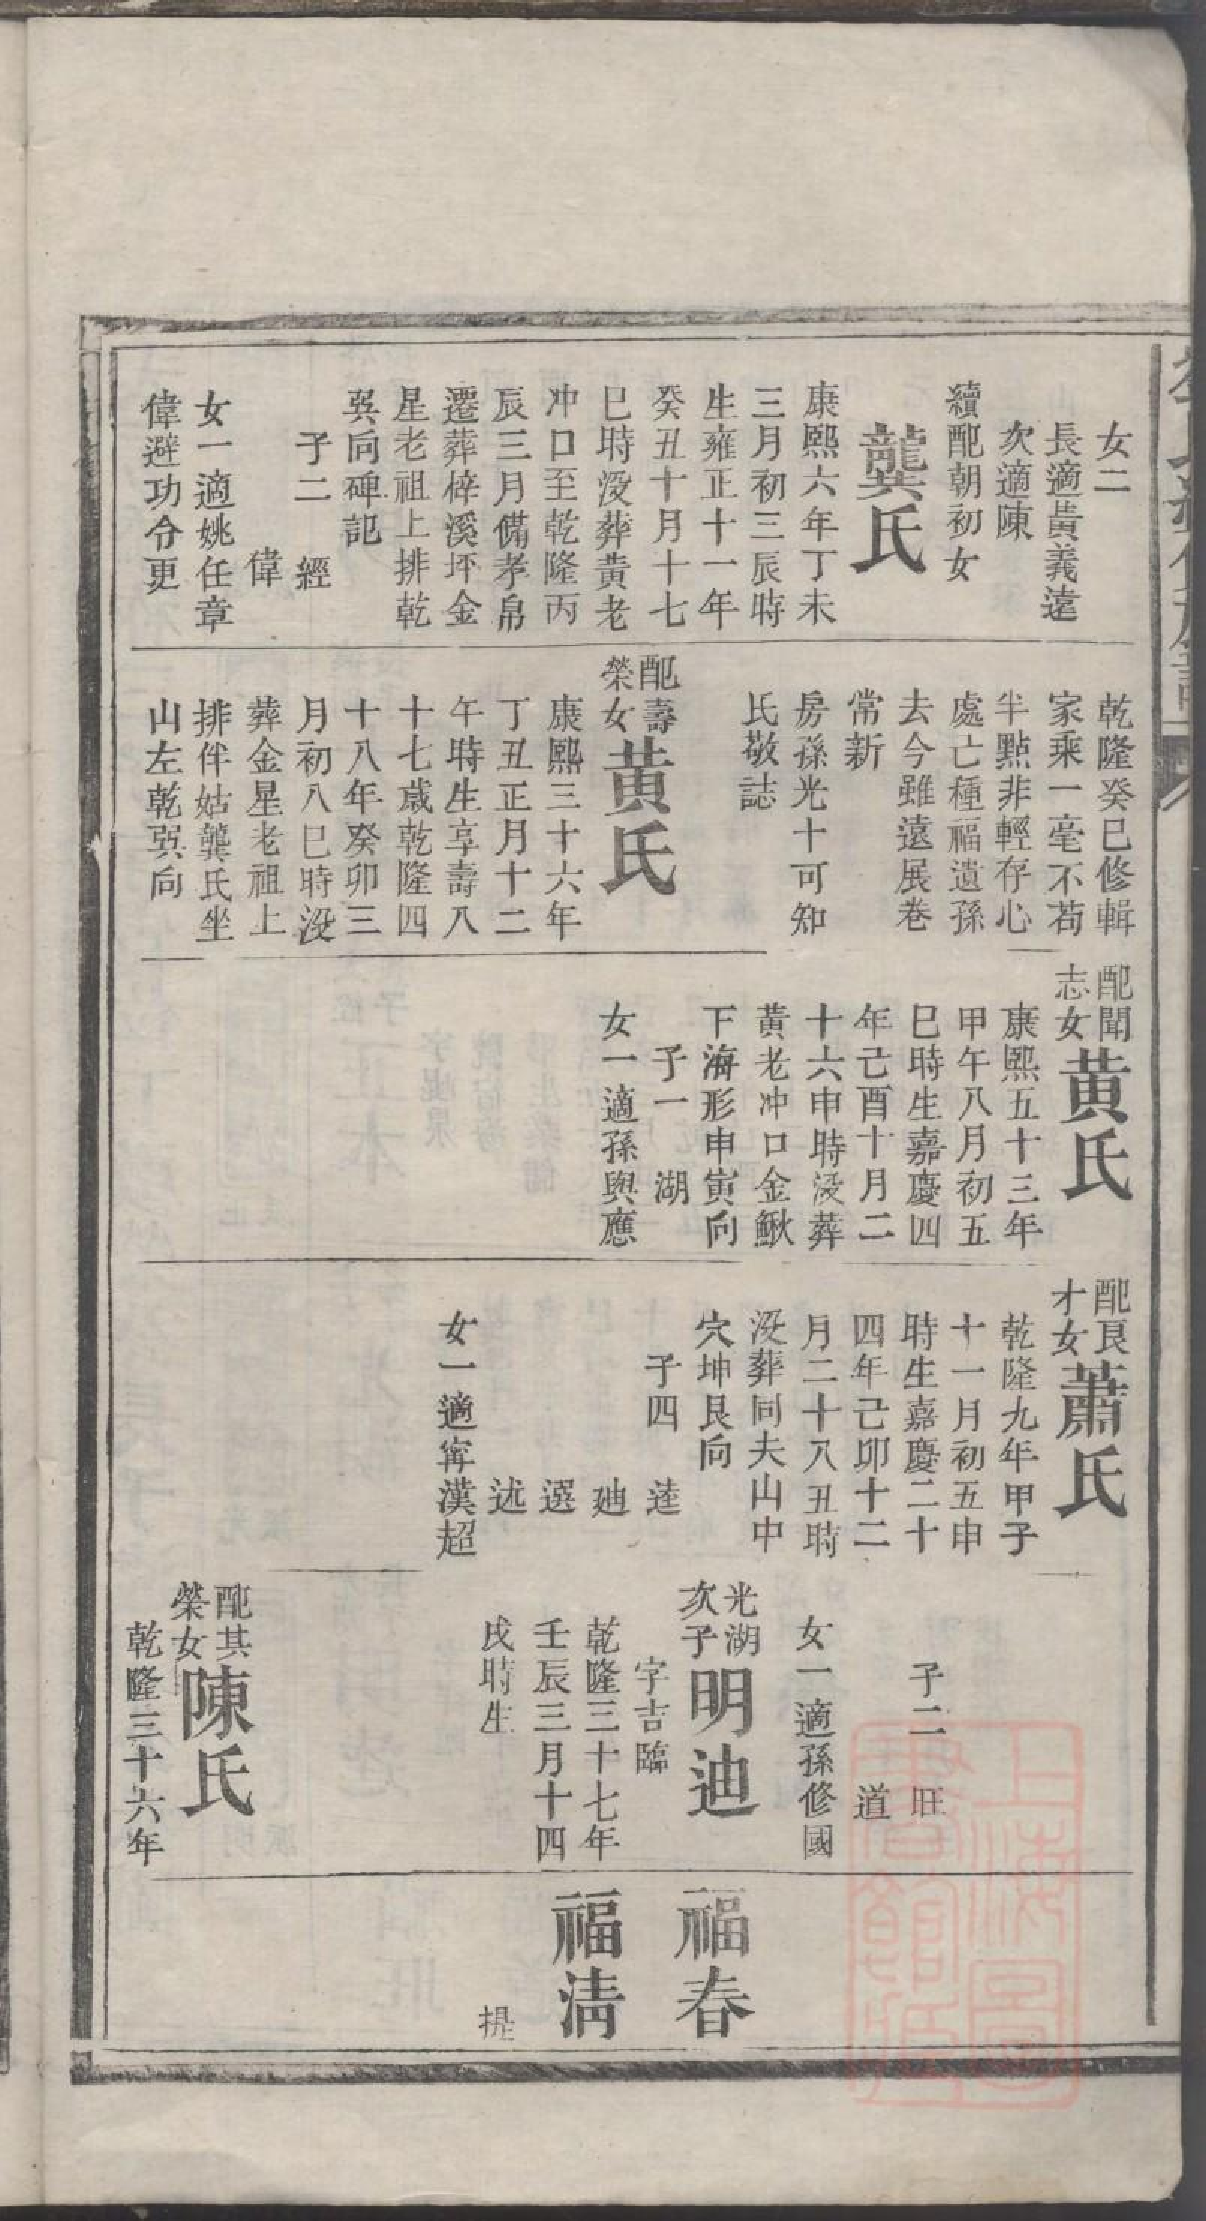 女二
長適黃義遠
次適陳
續配朝初女
龔氏
康熙六年丁未
三月初三辰時
生雍正十一年
癸丑十月十七
巳時没葬黃老
冲口至乾隆丙
辰三月備孝帛
遷葬梓溪坪金
星老祖上排乾
㢲向碑記
子二 經
偉
女一適姚任章
偉避功令更
乾隆癸巳修輯
家乘一毫不苟
半點非輕存心
處亡種福遺孫
去今雖遠展卷
常新
房孫光十可知
氏敬誌
配壽
榮女
黃氏
康熙三十六年
丁丑正月十二
午時生享壽八
十七歳乾隆四
十八年癸卯三
月初八巳時没
葬金星老祖上
排伴姑龔氏坐
山左乾㢲向
配聞
志女
黃氏
康熙五十三年
甲午八月初五
巳時生嘉慶四
年己酉十月二
十六申時没葬
黃老冲口金鰍
下海形申寅向
子一 湖
女一適孫與應
配良
才女
蕭氏
乾隆九年甲子
十一月初五申
時生嘉慶二十
四年己卯十二
月二十八丑時
没葬同夫山中
穴坤艮向
子四 逵
迪
選
述
女一適甯漢超
子二 旺
道
女一適孫修國
光湖
次子
明迪
字吉臨
乾隆三十七年
壬辰三月十四
戌時生
配其
榮女
陳氏
乾隆三十六年
福春
福清
提
上海圖
書館藏